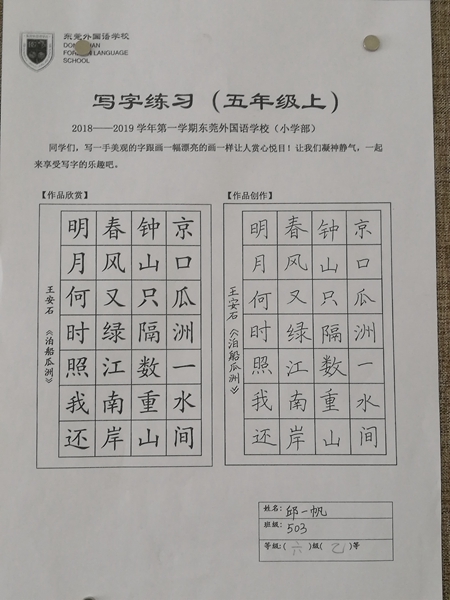 东莞外国语学校
FOREIGN LANGUAGE
SCHOOL
写字练习（五年级上）
2018——2019学年第一学期东莞外国语学校（小学部）
同学们，写一手美观的字跟画一幅漂亮的画一样让人赏心悦目！让我们凝神静气，一起
来享受写字的乐趣吧。
【作品欣赏】
京口瓜洲一水间
钟山只隔数重山
春风又绿江南岸
明月何时照我还
王安石《泊船瓜洲》
【作品创作】
京口瓜洲一水间
钟山只隔数重山
春风又绿江南岸
明月何时照我还
王安石《泊船瓜洲》
姓名：邱一帆
班级：503
等级：（六）级（乙）等